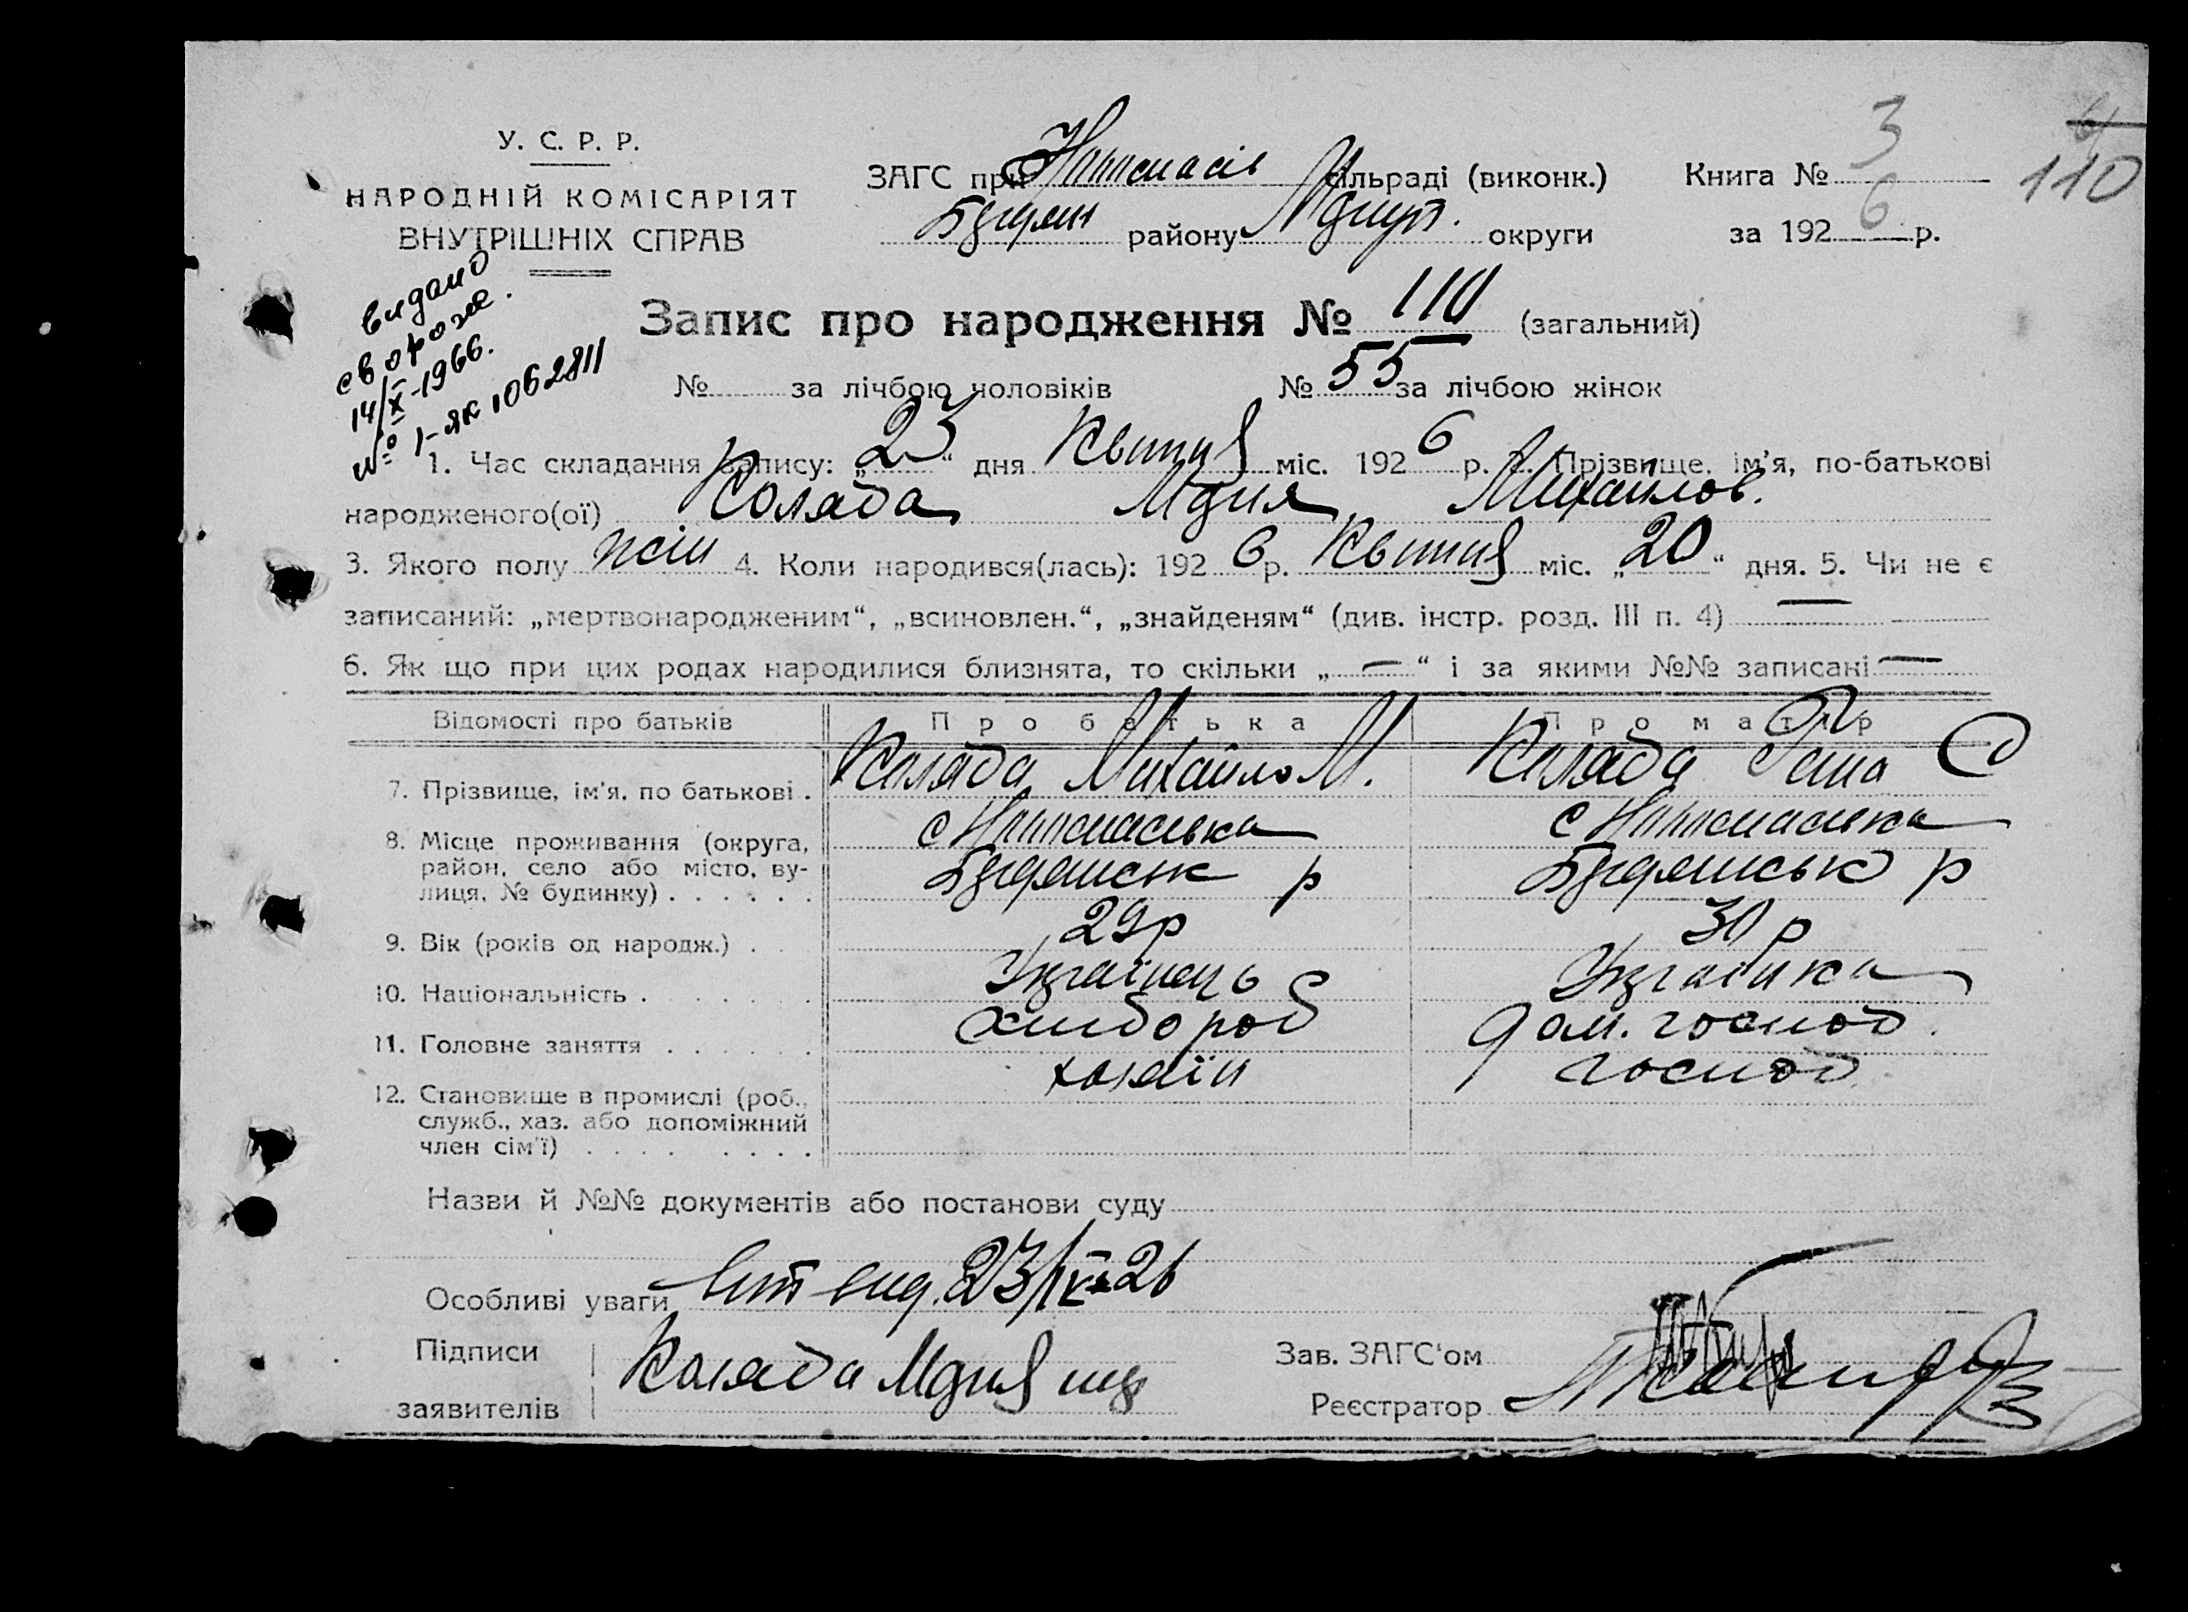 У. С. Р. Р.
НАРОДНІЙ КОМІСАРІЯТ
ВНУТРІШНІХ СПРАВ
ЗАГС при сільраді (виконк.)
району округи
Книга № 3
за 1926 р.
110
видано
14/X-1966.
№ I-як 1062811
Запис про народження № 110 (загальний)
№ за лічбою чоловіків № 55 за лічбою жінок
1. Час складання запису: „23“ дня Квітня міс. 1926 р. 2. Прізвище, ім’я, по-батькові
народженого(ої) Коляда Михайлов.
3. Якого полу жін 4. Коли народився(лась): 1926 р. Квітня міс. „20“ дня. 5. Чи не є
записаний: „мертвонародженим“, „всиновлен.“, „знайденям“ (див. інстр. розд. III п. 4) —
6. Як що при цих родах народилися близнята, то скільки „—“ і за якими №№ записані —
Відомості про батьків Про батька Про матір
7. Прізвище, ім’я, по батькові . Коляда Михайло М. Коляда
8. Місце проживання (округа,
район, село або місто, ву-
лиця, № будинку) . . . . . .
9. Вік (років од народж.) . . 29 р 30 р
10. Національність . . . . . Українець Українка
11. Головне заняття . . . . . . хлібороб дом. господ.
12. Становище в промислі (роб.,
служб., хаз. або допоміжний
член сім’ї) . . . . . . . . хазяїн господ
Назви й №№ документів або постанови суду
Особливі уваги 23/IV-26
Підписи
заявителів Коляда
Зав. ЗАГС‘ом
Реєстратор